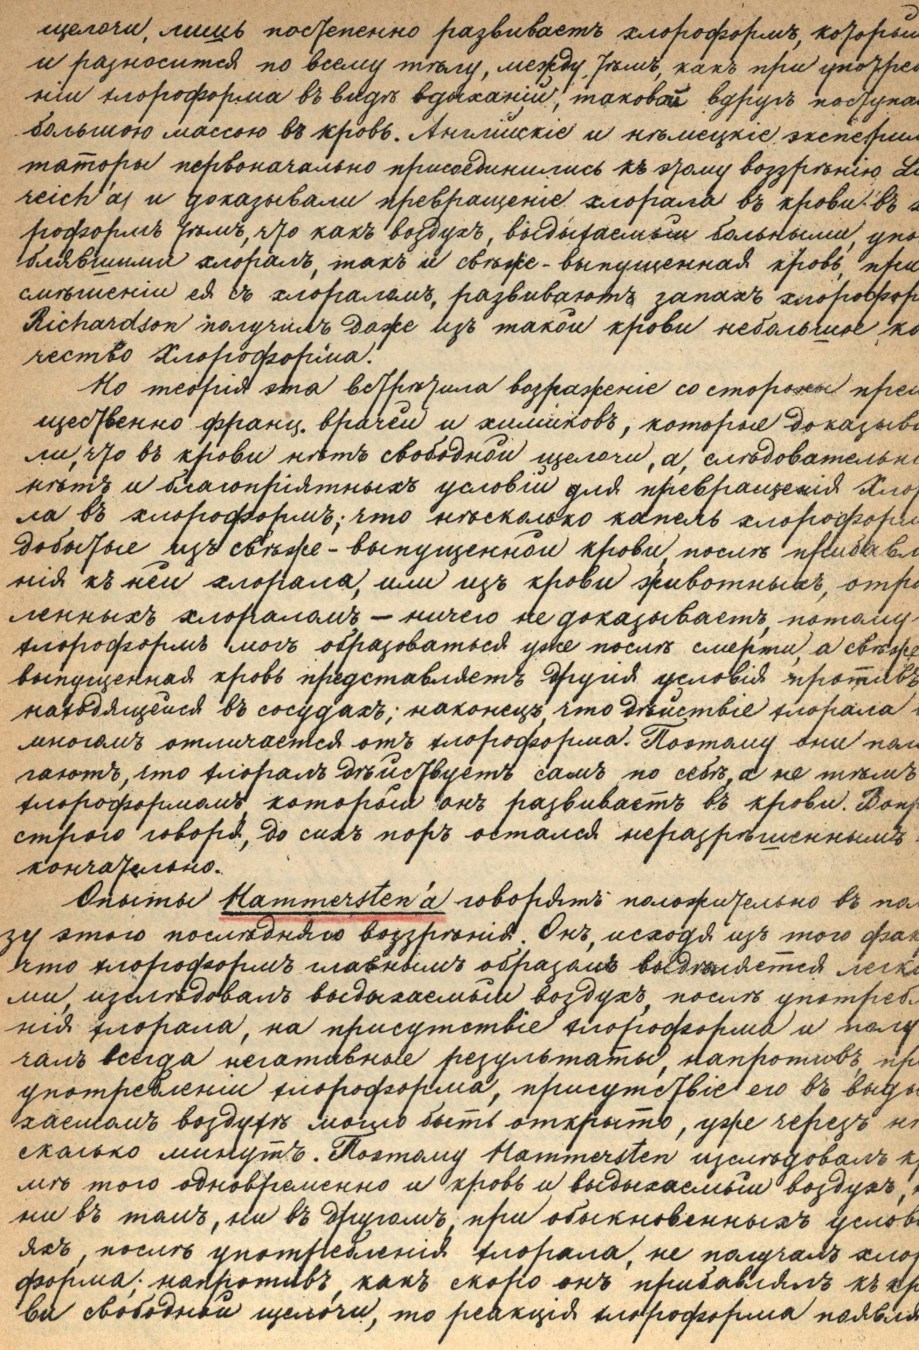 щелочи, лишь постепенно развиваетъ хлороформъ, который
и разносится по всему тѣлу, между тѣмъ, какъ при употреб
ніи хлороформа въ видѣ вдыханій, таковой вдругъ поступа
большою массою въ кровь. Англійскіе и нѣмецкіе экспери
таторы первоначально присоединились къ этому воззрѣнію Li
reich'a, и доказывали превращеніе хлорала въ крови въ х
роформъ тѣмъ, что какъ воздухъ, выдыхаемый больными, упо
блявшими хлоралъ, такъ и свѣже-выпущенная кровь, при
смѣшеніи ея съ хлораломъ, развиваютъ запахъ хлорофор
Richardson получилъ даже изъ такой крови небольшое ко
чество хлороформа.
Но теорія эта встрѣтила возраженіе со стороны преи
щественно франц. врачей и химиковъ, которые доказыва
ли, что въ крови нѣтъ свободной щелочи, а, слѣдовательно
нѣтъ и благопріятныхъ условій для превращенія хлор
ла въ хлороформъ; что нѣсколько капель хлороформа
добытые изъ свѣже-выпущенной крови, послѣ прибавле
нія къ ней хлорала, или изъ крови животныхъ, отра
вленныхъ хлораломъ — ничего не доказываетъ, потому
хлороформъ могъ образоваться уже послѣ смерти, а свѣже
выпущенная кровь представляетъ другія условія противъ
находящейся въ сосудахъ; наконецъ, что дѣйствіе хлорала
многомъ отличается отъ хлороформа. Поэтому они пола
гаютъ, что хлоралъ дѣйствуетъ самъ по себѣ, а не тѣмъ
хлороформомъ, который онъ развиваетъ въ крови. Вопр
строго говоря, до сихъ поръ остался неразрѣшеннымъ
кончательно.
Опыты Hammersten'a говорятъ положительно въ пол
зу этого послѣдняго воззрѣнія. Онъ, исходя изъ того фак
что хлороформъ главнымъ образомъ выдѣляется легки
ми, изслѣдовалъ выдыхаемый воздухъ, послѣ употребле
нія хлорала, на присутствіе хлороформа и полу
чалъ всегда негативные результаты, напротивъ, при
употребленіи хлороформа, присутствіе его въ выды
хаемомъ воздухѣ могло быть открыто, уже черезъ нѣ
сколько минутъ. Поэтому Hammersten изслѣдовалъ кр
мѣ того одновременно и кровь и выдыхаемый воздухъ,
ни въ томъ, ни въ другомъ, при обыкновенныхъ услові
яхъ, послѣ употребленія хлорала, не получалъ хлор
форма; напротивъ, какъ скоро онъ прибавлялъ къ кро
ви свободной щелочи, то реакція хлороформа появля